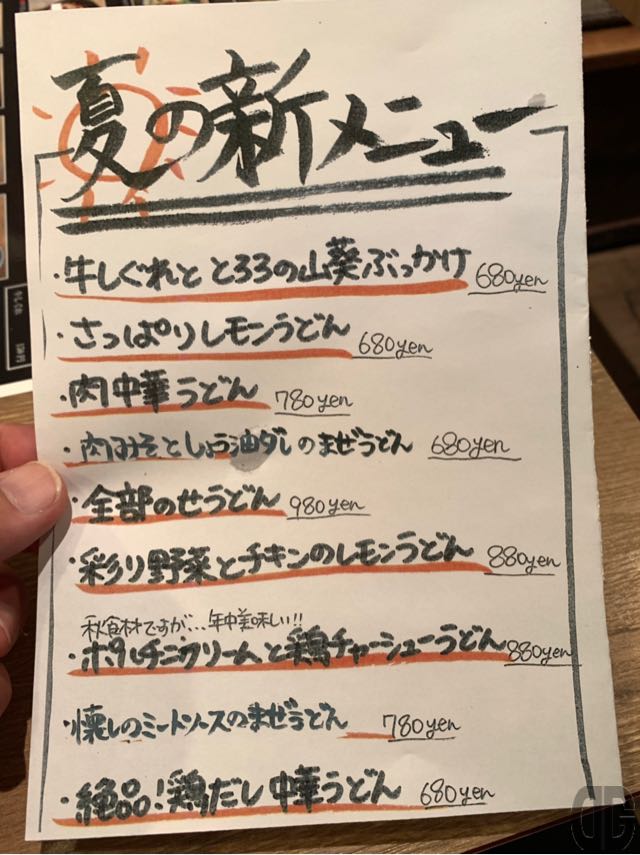 夏の新メニュー
・牛しぐれと とろろの山葵ぶっかけ 680yen
・さっぱりレモンうどん 680yen
・肉中華うどん 780yen
・肉みそとしょう油ダレのまぜうどん 680yen
・全部のせうどん 980yen
・彩り野菜とチキンのレモンうどん 880yen
秋食材ですが…年中美味しい!!
・ポルチーニクリームと鶏チャーシューうどん 880yen
・懐しのミートソースのまぜうどん 780yen
・絶品!鶏だし中華うどん 680yen